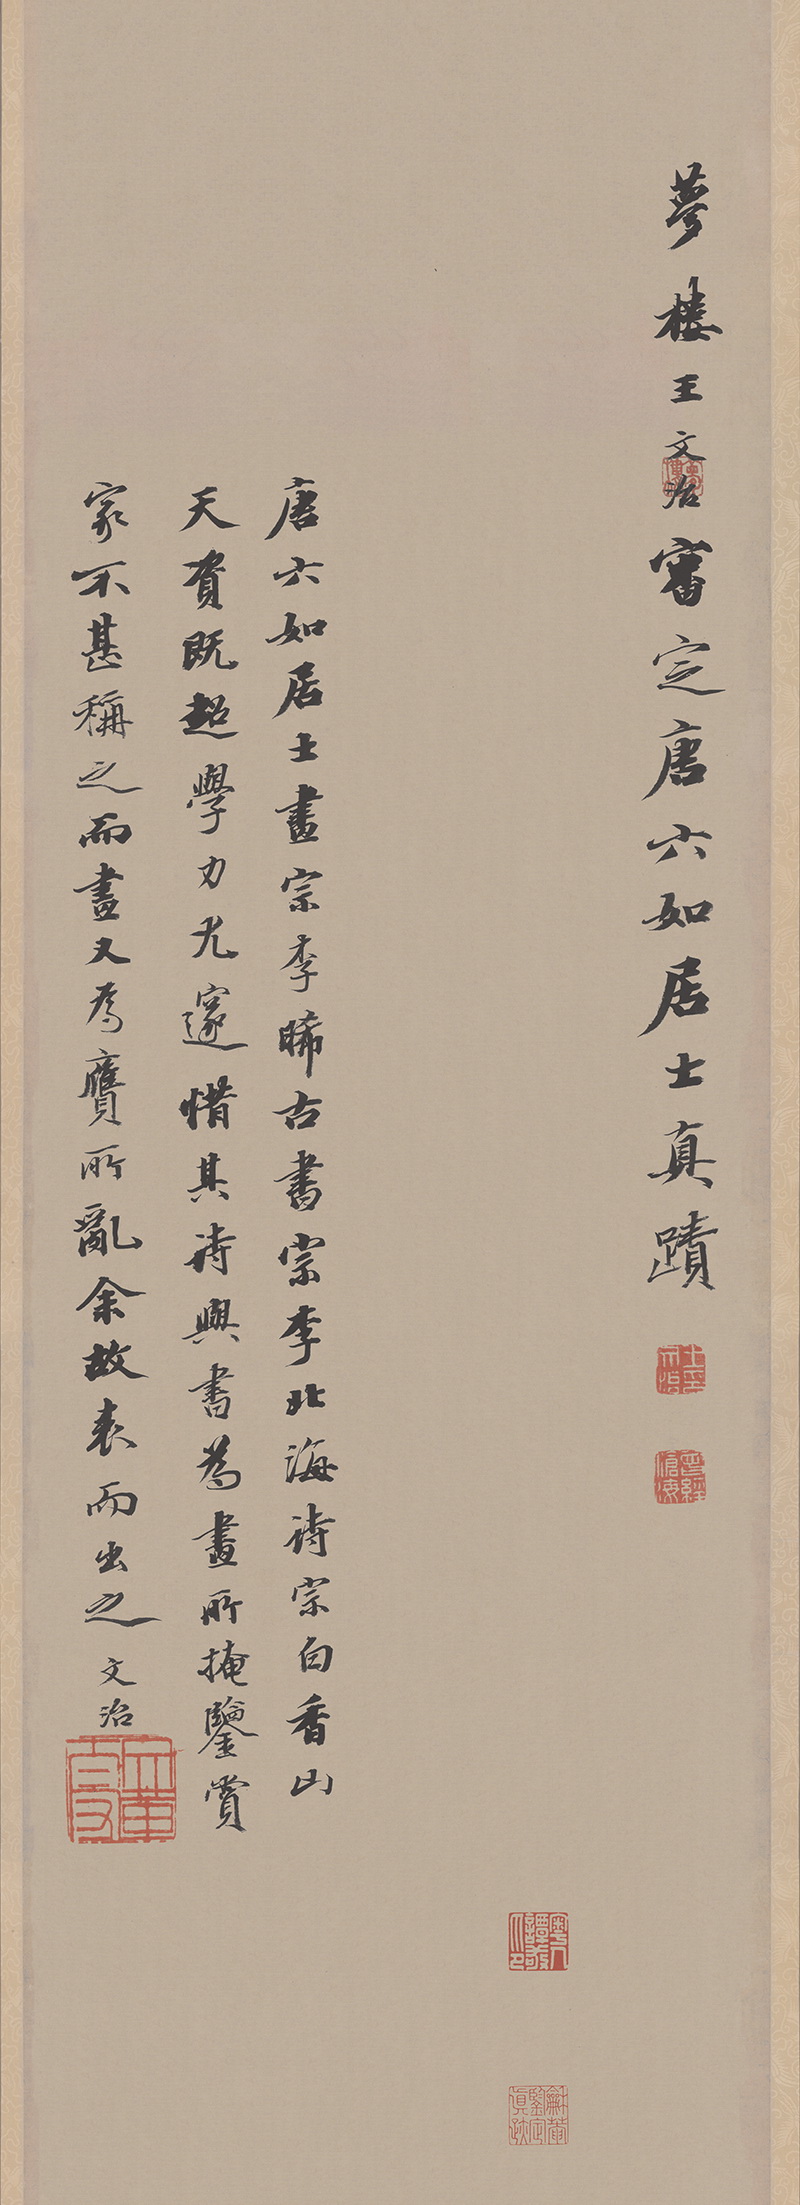 夢樓王文治審定唐六如居士真蹟
唐六如居士畫宗李晞古書宗李北海詩宗白香山
天資既超學力尤邃惜其詩與書為畫所掩鑒賞
家不甚稱之而畫又為贗所亂余故表而出之文治